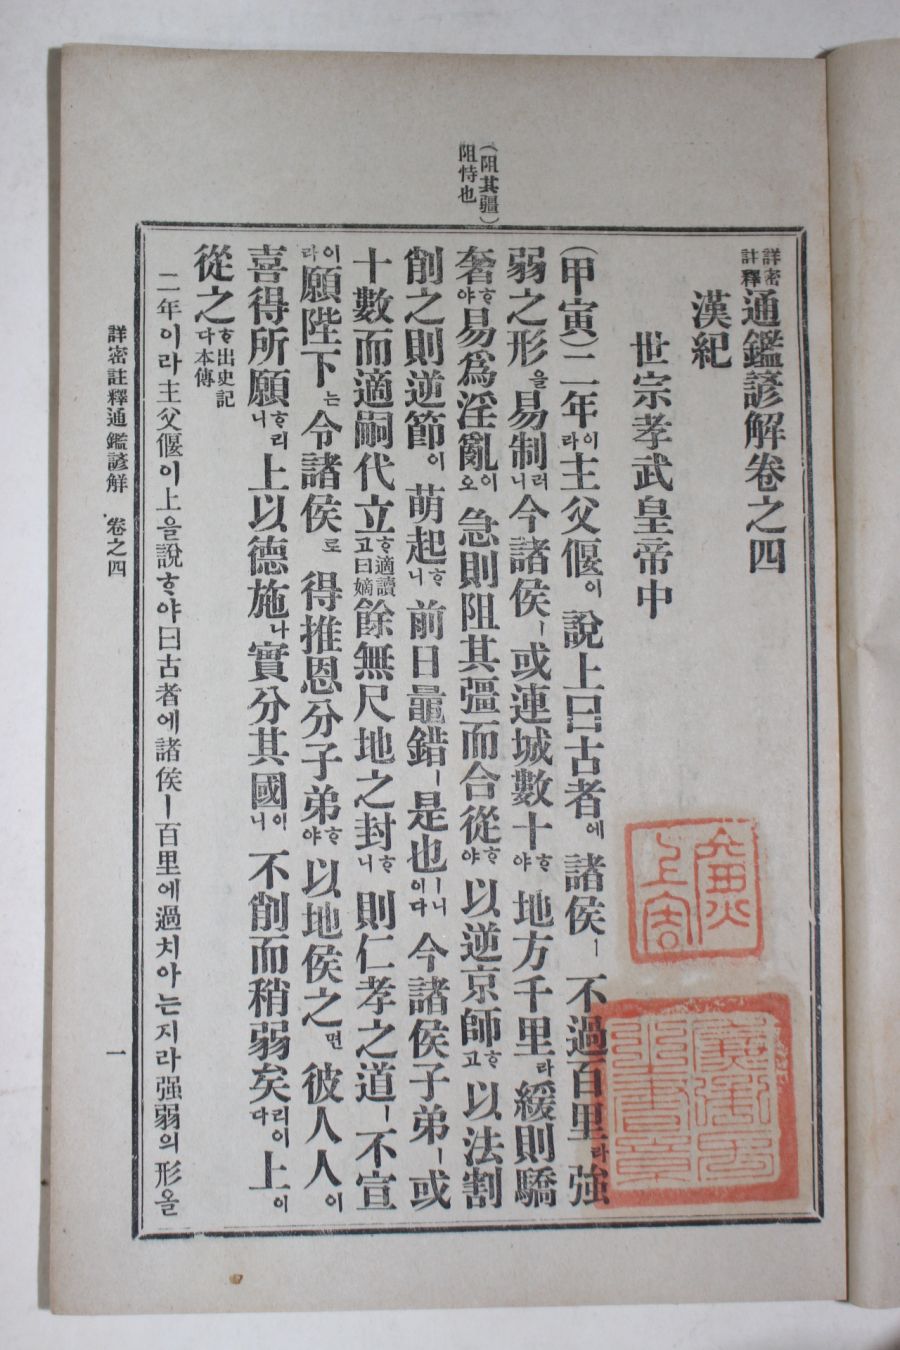 (阻其疆)
阻恃也
詳密註釋通鑑諺解卷之四
漢紀
世宗孝武皇帝中
(甲寅)二年이라主父偃이說上曰古者에諸侯ㅣ不過百里라強
弱之形을易制러니今諸侯ㅣ或連城數十ᄒᆞ야地方千里라緩則驕
奢ᄒᆞ야易爲淫亂이오急則阻其彊而合從ᄒᆞ야以逆京師ᄒᆞ고以法割
削之則逆節이萌起ᄒᆞ니前日鼂錯ㅣ是也ㅣ니이다今諸侯子弟ㅣ或
十數而適嗣代立ᄒᆞ고適讀曰嫡餘無尺地之封ᄒᆞ니則仁孝之道ㅣ不宣
이라願陛下는令諸侯로得推恩分子弟ᄒᆞ야以地侯之면彼人人이
喜得所願ᄒᆞ리니上以德施나實分其國이니不削而稍弱矣리이다上이
從之ᄒᆞ다出史記本傳
二年이라主父偃이上을說ᄒᆞ야曰古者에諸侯ㅣ百里에過치아는지라强弱의形을
詳密註釋通鑑諺解 卷之四 一